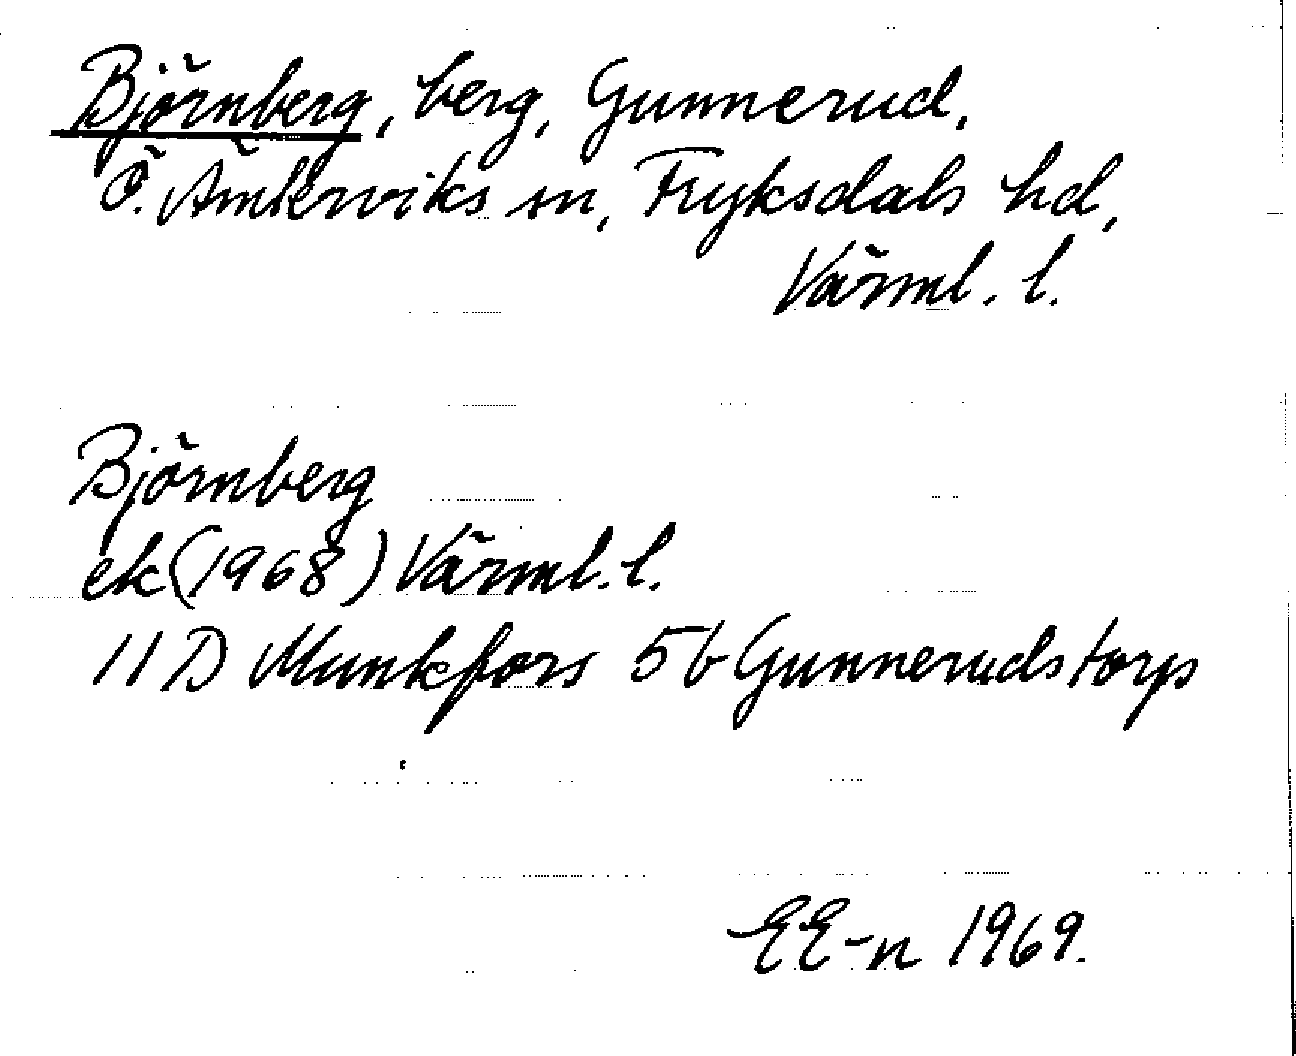 Björnberg, berg, Gunnerud,
Ö. Ämterviks sn, Fryksdals hd,
Värml. l.
Björnberg
ek (1968) Värml. l.
11 D Munkfors 5b Gunnerudstorp
EE-n 1969.